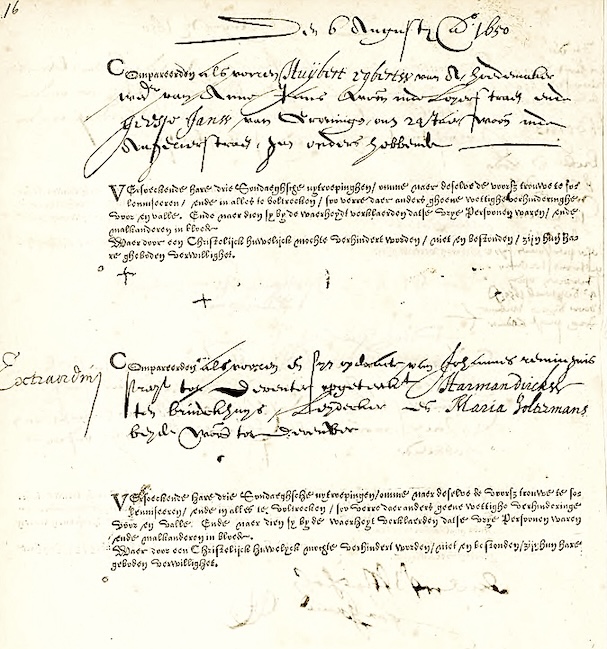 16
Den 6 Augusty Ao. 1650
Compareerden als vooren Huijbert egbertsz van
wedr. van Anna woon. inde Loyerstraet ende
geesje Jans van Groninge, out 24 Jaer woon. inde
Angelierstraet, geen ouders hebbende
Versoeckende hare drie Sondaeghsche uytroepinghen / omme naer deselve de voorsz trouwe te so-
lenniseeren / ende in alles te voltrecken / soo verre daer anders gheene wettighe verhinderinghe
voor en valle. Ende naer dien sy by de waerheydt verklaerden datse vrye Personen waren / ende
malkanderen in bloede
Waer door een Christelijck huwelijck mochte verhindert worden / niet en bestonden / zijn hun ha-
re gheboden verwillighet.
Extraordins
Compareerden als vooren Johannes
tot Deventer Harman dircksz
ten brinckhuijs, en Maria holtermans
beyde woon. tot Deventer
Versoeckende hare drie Sondaeghsche uytroepingen / omme naer deselve de voorsz trouwe te so-
lenniseeren / ende in alles te voltrecken / soo verre daer anders geene wettighe verhinderinge
voor en valle. Ende naer dien sy by de waerheyt verklaerden datse vrye Personen waren
/ ende malkanderen in bloede
Waer door een Christelijck huwelyck mogte verhindert worden / niet en bestonden / zijn hun hare
geboden verwillighet.